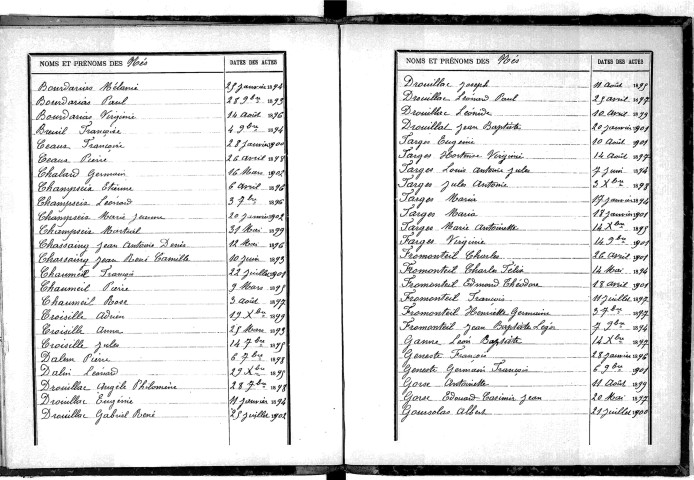 NOMS ET PRÉNOMS DES Nés DATES DES ACTES
Bourdarias Mélanie 25 janvier 1894
Bourdarias Paul 28 9bre 1893
Bourdarias Virginie 14 Août 1896
Breuil Françoise 4 9bre 1894
Ceaux Françoise 28 janvier 1900
Ceaux Pierre 26 avril 1898
Chalard Germain 16 Mars 1902
Champseix Etienne 6 avril 1896
Champseix Léonard 3 7bre 1896
Champseix Marie Jeanne 20 janvier 1902
Champseix Martial 31 Mai 1899
Chassaing Jean Antoine Denis 12 Mai 1896
Chassaing Jean René Camille 10 juin 1893
Chaumeil François 22 juillet 1901
Chaumeil Pierre 9 Mars 1895
Chaumeil Rose 3 Août 1897
Croisille Adrien 19 Xbre 1899
Croisille Anna 25 Mars 1893
Croisille Jules 14 7bre 1895
Dalem Pierre 6 7bre 1898
Dalin Léonard 29 Xbre 1895
Drouillac Angèle Philomène 28 7bre 1898
Drouillac Eugénie 11 janvier 1894
Drouillac Gabriel René 25 juillet 1902
NOMS ET PRÉNOMS DES Nés DATES DES ACTES
Drouillac Joseph 11 Août 1895
Drouillac Léonard Paul 25 avril 1897
Drouillac Léonide 10 avril 1899
Drouillat Jean Baptiste 20 janvier 1901
Farges Eugénie 10 Août 1901
Farges Hortense Virginie 14 Août 1897
Farges Louis Antoine Jules 7 juin 1894
Farges Jules Antoine 3 Xbre 1898
Farges Maria 17 janvier 1894
Farges Maria 18 janvier 1901
Farges Marie Antoinette 14 Xbre 1895
Farges Virginie 14 9bre 1901
Fromonteil Charles 26 avril 1901
Fromonteil Charles Félix 14 Mai 1894
Fromonteil Edmond Théodore 18 avril 1901
Fromonteil François 11 juillet 1897
Fromonteil Henriette Germaine 3 7bre 1897
Fromonteil Jean Baptiste Léger 7 9bre 1894
Ganne Léon Baptiste 14 Xbre 1897
Geneste François 28 janvier 1896
Geneste Germain François 6 9bre 1901
Gorse Antoinette 11 Août 1899
Gorse Edouard Casimir Jean 20 Mai 1897
Goursolas Albert 21 juillet 1900